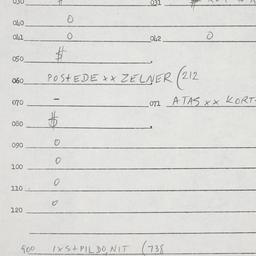 030 # 031
040 0
041 0 042 0
050 $
060 POSTEDE xx ZELNER (212
070 - 071 ATAS xx KORT-
080 $
090 0
100 0
110 0
120 0
900 IXS+PILDO,NIT (738